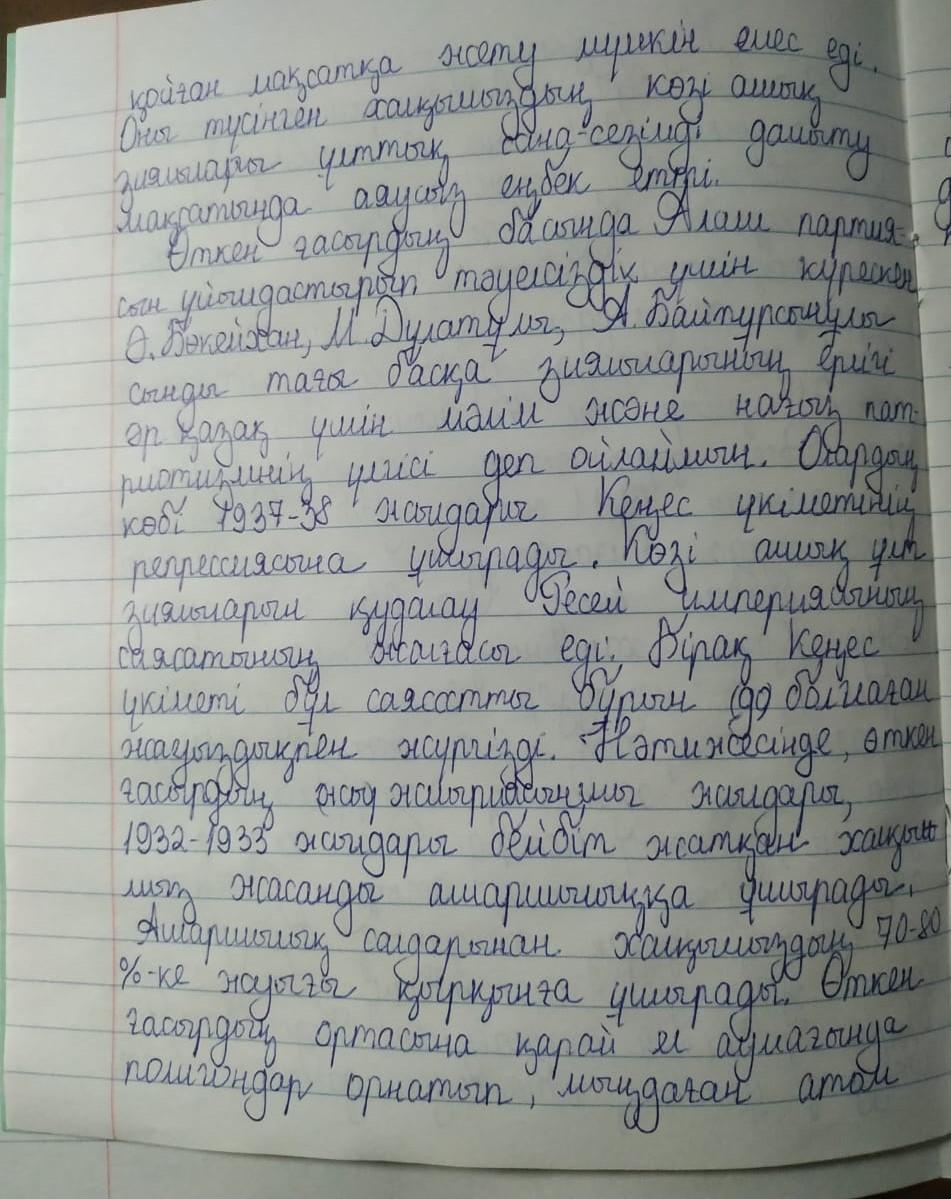 қойған мақсатқа жету мүмкін емес еді.
Оны түсінген халқымыздың көзі ашық
зиялылары ұлттық сана-сезімді дамыту
мақсатында аяусыз еңбек етті.
Өткен ғасырдың басында Алаш партия-
сын ұйымдастырып тәуелсіздік үшін күрескен
Ә. Бөкейхан, М. Дулатұлы, А. Байтұрсынұлы
сынды тағы басқа зиялыларының ерлігі
әр қазақ үшін мәлім және нағыз пат-
риотизмнің үлгісі деп ойлаймын. Олардың
көбі 1937-38 жылдары Кеңес үкіметінің
репрессиясына ұшырады. Көзі ашық ұлт
зиялыларын қудалау Ресей империясының
саясатының жалғасы еді. Бірақ Кеңес
үкіметі бұл саясатты бұрын да болмаған
жауыздықпен жүргізді. Нәтижесінде, өткен
ғасырдың жиырмасыншы жылдары,
1932-1933 жылдары бейбіт жатқан халқы
мыз жасанды ашаршылыққа ұшырады.
Ашаршылық салдарынан халқымыздың 70-80
%-ке жауығы қырқынға ұшырады. Өткен
ғасырдың ортасына қарай ел аумағында
полигондар орнатып, мыңдаған атом